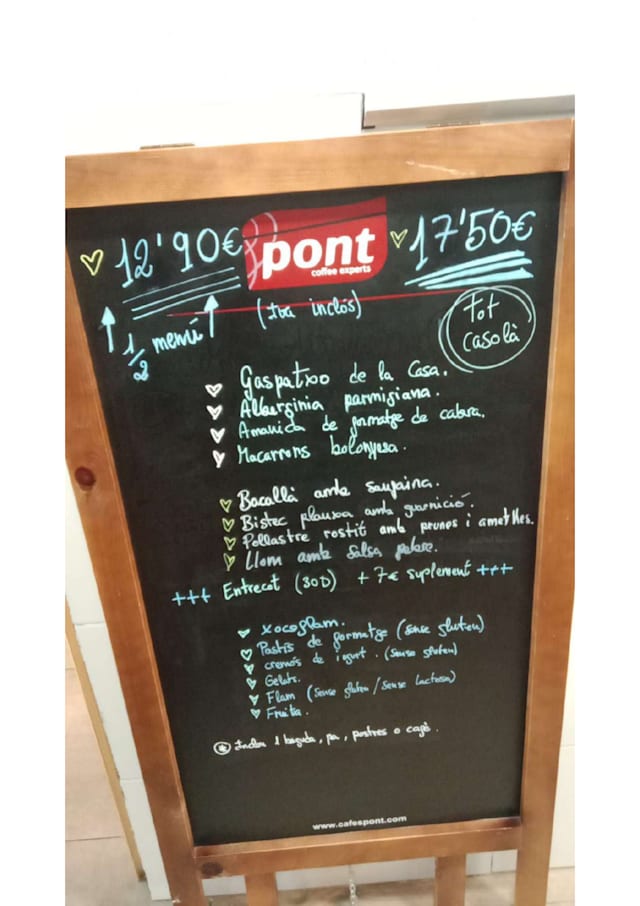 12'90€ pont 17'50€
coffee experts
1/2 menú (Iva inclòs) tot casolà
Gaspatxo de la Casa.
Alberginia parmigiana.
Amanida de formatge de cabra.
Macarrons bolonyesa.
Bacallà amb samfaina.
Bistec planxa amb guarnició.
Pollastre rostit amb prunes i ametlles.
Llom amb salsa pebre.
+++ Entrecot (300) +7€ suplement +++
xocoflam.
Pastís de formatge (sense gluten)
cremós de iogurt. (sense gluten)
Gelats.
Flam (sense gluten / sense lactosa)
Fruita.
* Inclou 1 beguda, pa, postres o cafè.
www.cafespont.com